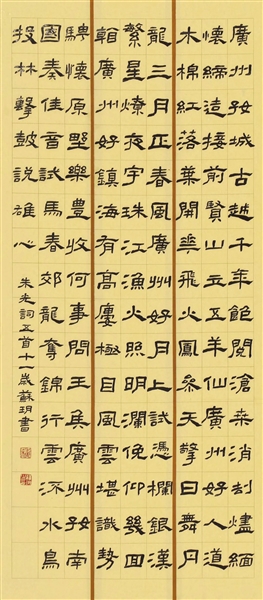 廣州好城古越千年飽閱滄桑消劫燼緬
懷締造接前賢山立五羊仙廣州好人道
木棉紅落葉開花飛火鳳參天擎日舞丹
龍三月正春風廣州好月上試憑欄銀漢
繁星燎夜宇珠江漁火照明瀾俛仰幾回
廣州好鎮海有高樓極目風雲堪識勢
騁懷原野樂豐收何事問王矦廣州好南
國奏佳音試馬春郊龍奪錦行雲流水鳥
投林擊鼓說雄心
朱光詞五首十一歲蘇玥書